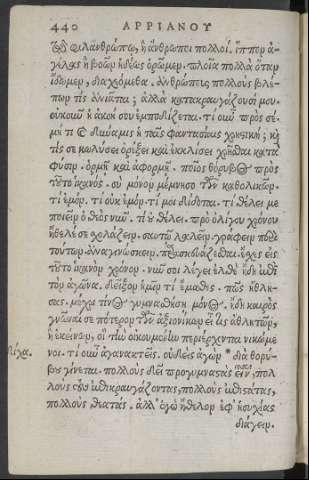 440 ΑΡΡΙΑΝΟΥ
τῷ φιλανθρώπῳ, ἢ ἄνθρωποι πολλοί. ἵππων ἀ-
γέλας ἢ βοῶν ἡδέως ὁρῶμεν. πλοῖα πολλὰ ὅταν
ἴδωμεν, διαχεόμεθα. ἀνθρώπους πολλοὺς βλέ-
πων τίς ἀνιᾶται; ἀλλὰ κατακραυγάζουσί μου.
οὐκοῦν ἡ ἀκοή σου ἐμποδίζεται. τί οὖν πρὸς σέ.
μή τι ἡ δύναμις ἡ ταῖς φαντασίαις χρηστική; καὶ
τίς σε κωλύσει ὀρέξει καὶ ἐκκλίσει χρῆσθαι κατὰ
φύσιν. ὁρμῇ καὶ ἀφορμῇ. ποῖος θόρυβος πρὸς
τοῦτο ἱκανός. σὺ μόνον μέμνησο τῶν καθολικῶν.
τί ἐμόν. τί οὐκ ἐμόν. τί μοι δίδοται. τί θέλει με
ποιεῖν ὁ θεὸς νῦν. τί οὐ θέλει. πρὸ ὀλίγου χρόνου
ἤθελέ σε σχολάζειν. σαυτῷ λαλεῖν. γράφειν περὶ
τούτων. ἀναγινώσκειν. παρασκευάζεσθαι. ἔσχες εἰς
τοῦτο ἱκανὸν χρόνον. νῦν σοι λέγει ἐλθὲ ἤδη ἐπὶ
τὸν ἀγῶνα. δεῖξον ἡμῖν τί ἔμαθες. πῶς ἤθλη-
σας. μέχρι τίνος γυμνασθήσῃ μόνος. ἤδη καιρὸς
γνῶναί σε πότερον τῶν ἀξιονίκων εἶ τις ἀθλητῶν,
ἢ ἐκείνων, οἳ τὴν οἰκουμένην περιέρχονται νικώμε-
νοι. τί οὖν ἀγανακτεῖς. οὐδεὶς ἀγὼν *διὰ θορύ-
δίχα.
βου γίνεται. πολλοὺς δεῖ προγυμναστὰς εἶναι, πολ
λοὺς τοὺς ἐπικραυγάζοντας, πολλοὺς ἐπιστάτας,
πολλοὺς θεατάς. ἀλλ' ἐγὼ ἤθελον ἐφ' ἡσυχίας
διάγειν.